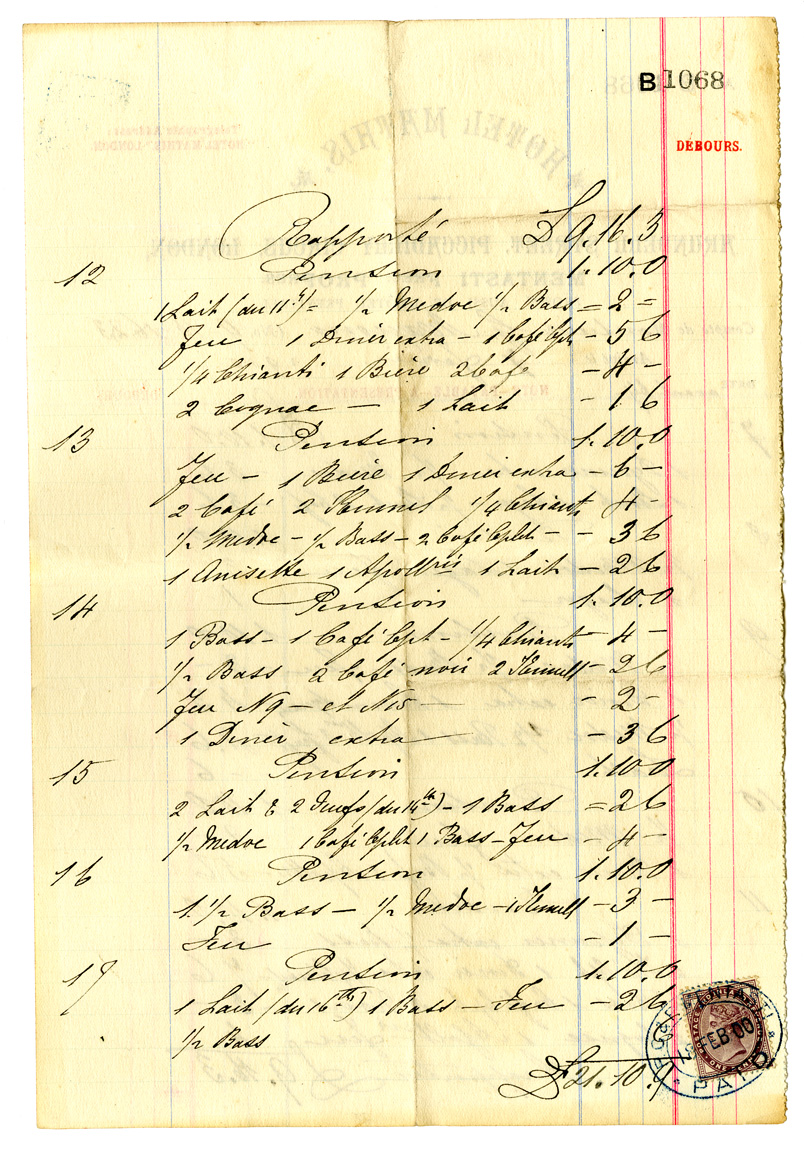 B 1068
DÉBOURS.
Rapporté £ 9.16.3
12 Pension 1.10.0
1 Lait (du 11) = 1/2 Medoc 1/2 Bass = 2 =
Feu 1 Diner extra - 1 Café Cplt - 5 6
1/4 Chianti 1 Bière 2 Cafe - 4 -
2 Cognac - 1 Lait - 1 6
13 Pension 1.10.0
Feu - 1 Bière 1 Diner extra - 6 -
2 Café 2 Kummel 1/4 Chianti 4 -
1/2 Medoc - 1/2 Bass - 2 Café Cplet - - 3 6
1 Anisette 1 Apollris 1 Lait - 2 6
14 Pension 1.10.0
1 Bass - 1 Café Cplt - 1/4 Chianti - 4 -
1/2 Bass 2 Café noir 2 Kummell - 2 6
Feu N9 - et N15 - - 2 -
1 Diner extra - 3 6
15 Pension 1.10.0
2 Lait & 2 Oeufs (du 14th) - 1 Bass = 2 6
1/2 Medoc 1 Café Cplet 1 Bass - Feu - 4 -
16 Pension 1.10.0
1 1/2 Bass - 1/2 Medoc - 1 Kummell - 3 -
Feu - 1 -
17 Pension 1.10.0
1 Lait (du 16th) 1 Bass - Feu - 2 6
1/2 Bass
£ 21.10.9
FEB 00
PAID